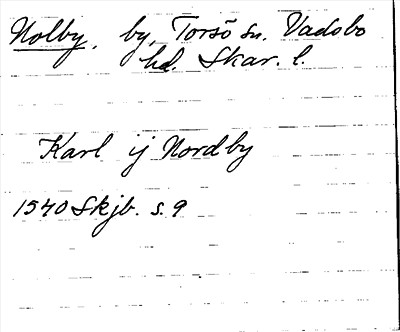 Nolby, by, Torsö sn. Vadsbo
hd. Skar. l.
Karl ij Nordby
1540 Skjb. s. 9